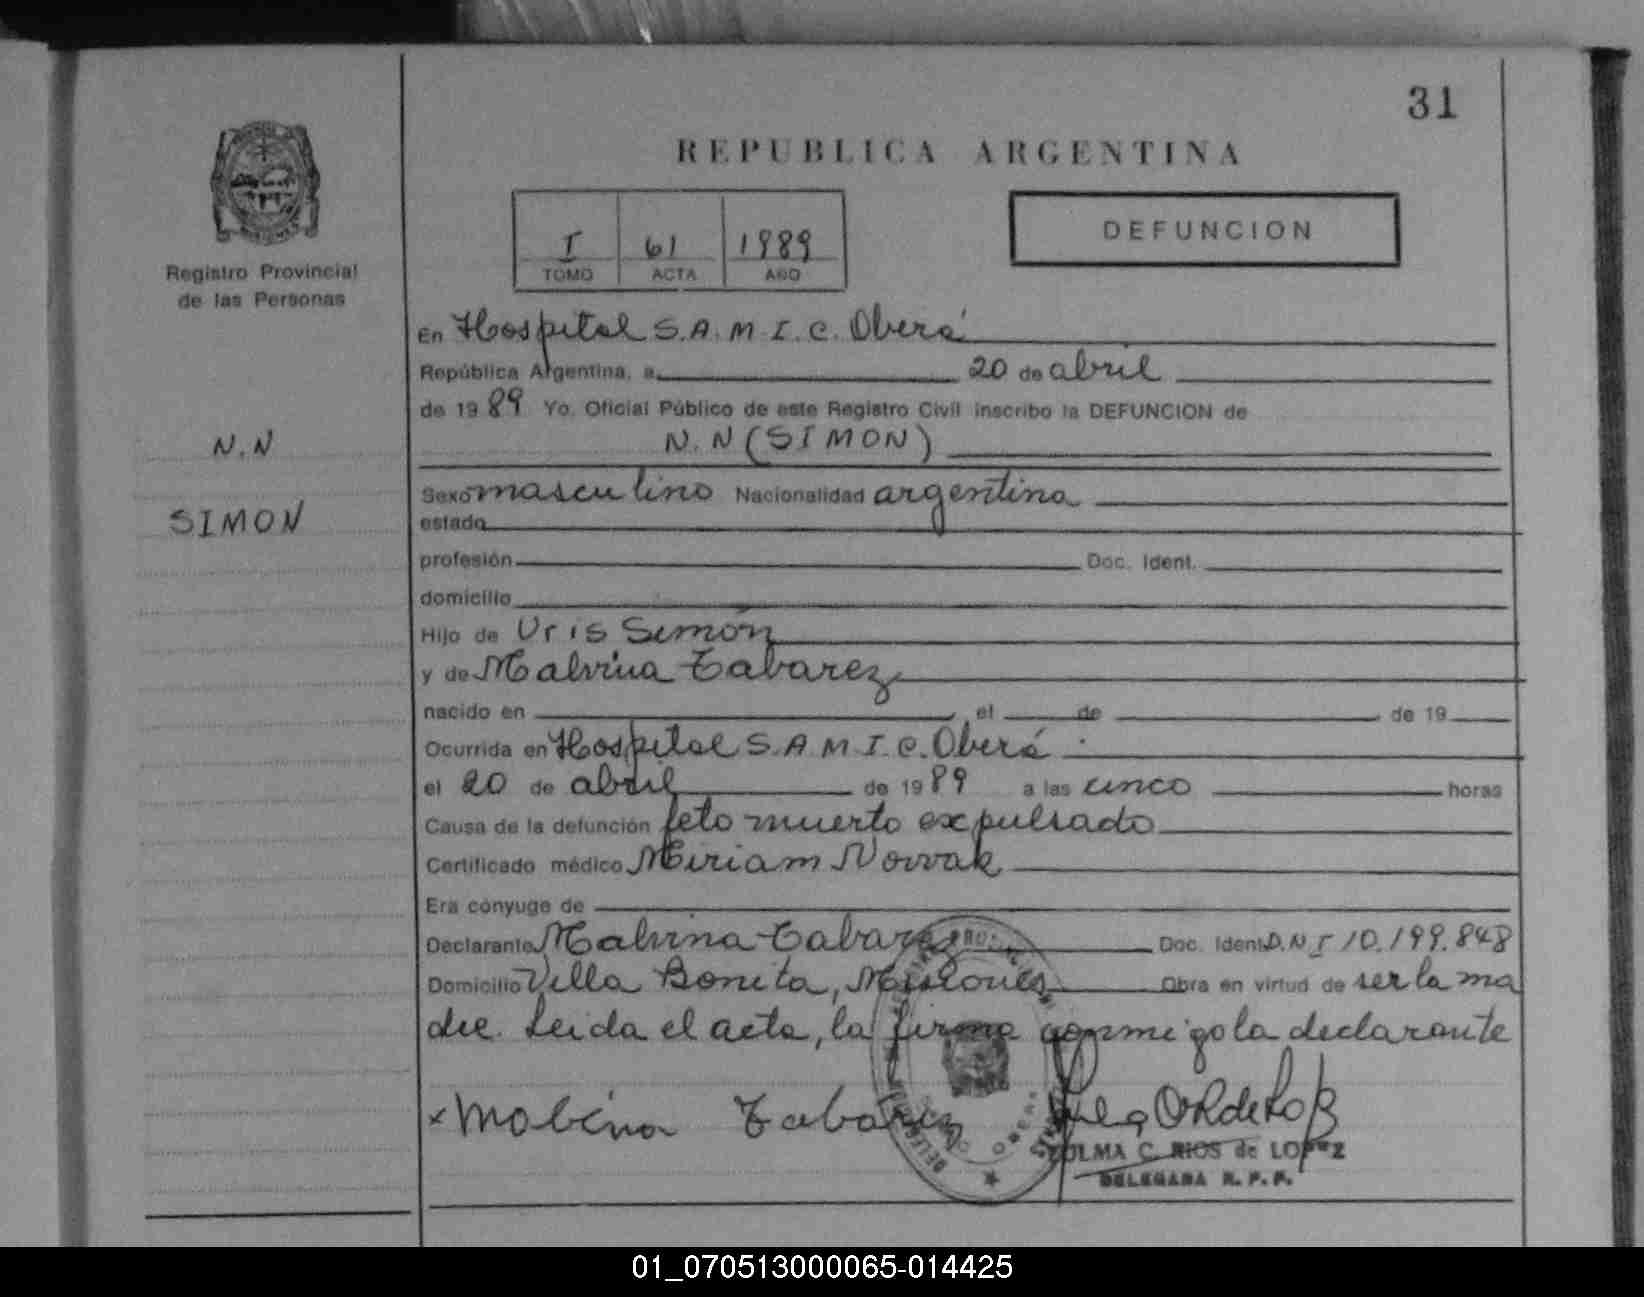 31
REPUBLICA ARGENTINA
Registro Provincial
de las Personas
I 61 1989
TOMO ACTA AÑO
DEFUNCION
En Hospital S.A.M.I.C. Oberá
República Argentina, a 20 de abril
de 1989 Yo, Oficial Público de este Registro Civil inscribo la DEFUNCION de
N.N
N.N (SIMON)
SIMON
Sexo masculino Nacionalidad argentina
estado
profesión Doc. Ident.
domicilio
Hijo de Uris Simón
y de Malvina Tabarez
nacido en , el de de 19
Ocurrida en Hospital S.A.M.I.C. Oberá
el 20 de abril de 1989 a las cinco horas
Causa de la defunción feto muerto expulsado
Certificado médico Miriam Nowak
Era cónyuge de
Declarante Malvina Tabarez Doc. Ident. D.N.I 10.199.848
Domicilio Villa Bonita, Misiones Obra en virtud de ser la ma
dre. Leida el acta, la firma conmigo la declarante
x Malvina Tabarez
ZULMA C. RIOS de LOPEZ
DELEGADA R. P. P.
01_070513000065-014425